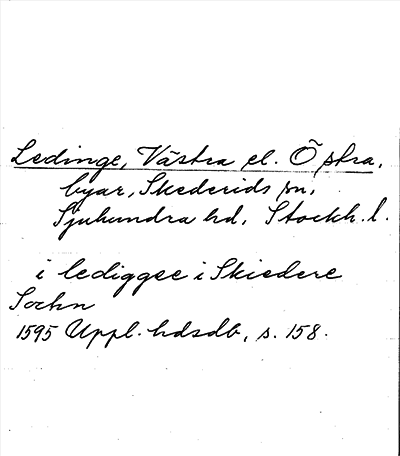 Ledinge, Västra el. Östra,
byar, Skederids sn,
Sjuhundra hd, Stockh. l.
i lediggee i Skiedere
Sochn
1595 Uppl. hdsdb, s. 158.